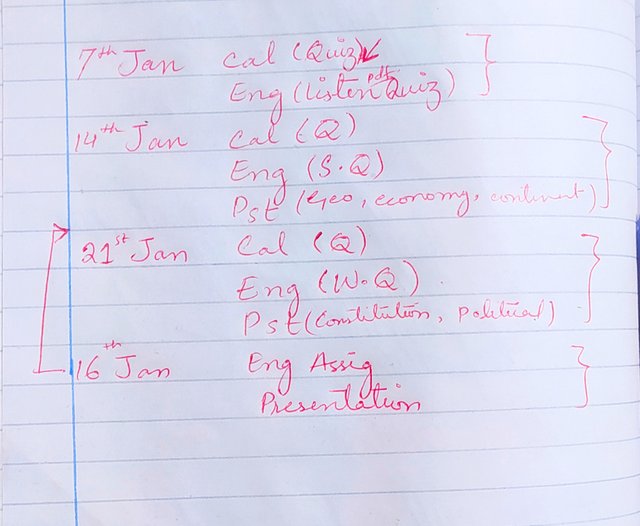 7th Jan Cal (Quiz)
Eng (Listen pdf Quiz)
14th Jan Cal (Q)
Eng (S.Q)
Pst (Geo, economy, continent)
21st Jan Cal (Q)
Eng (W.Q)
Pst (Constitution, Political)
16th Jan Eng Assig
Presentation